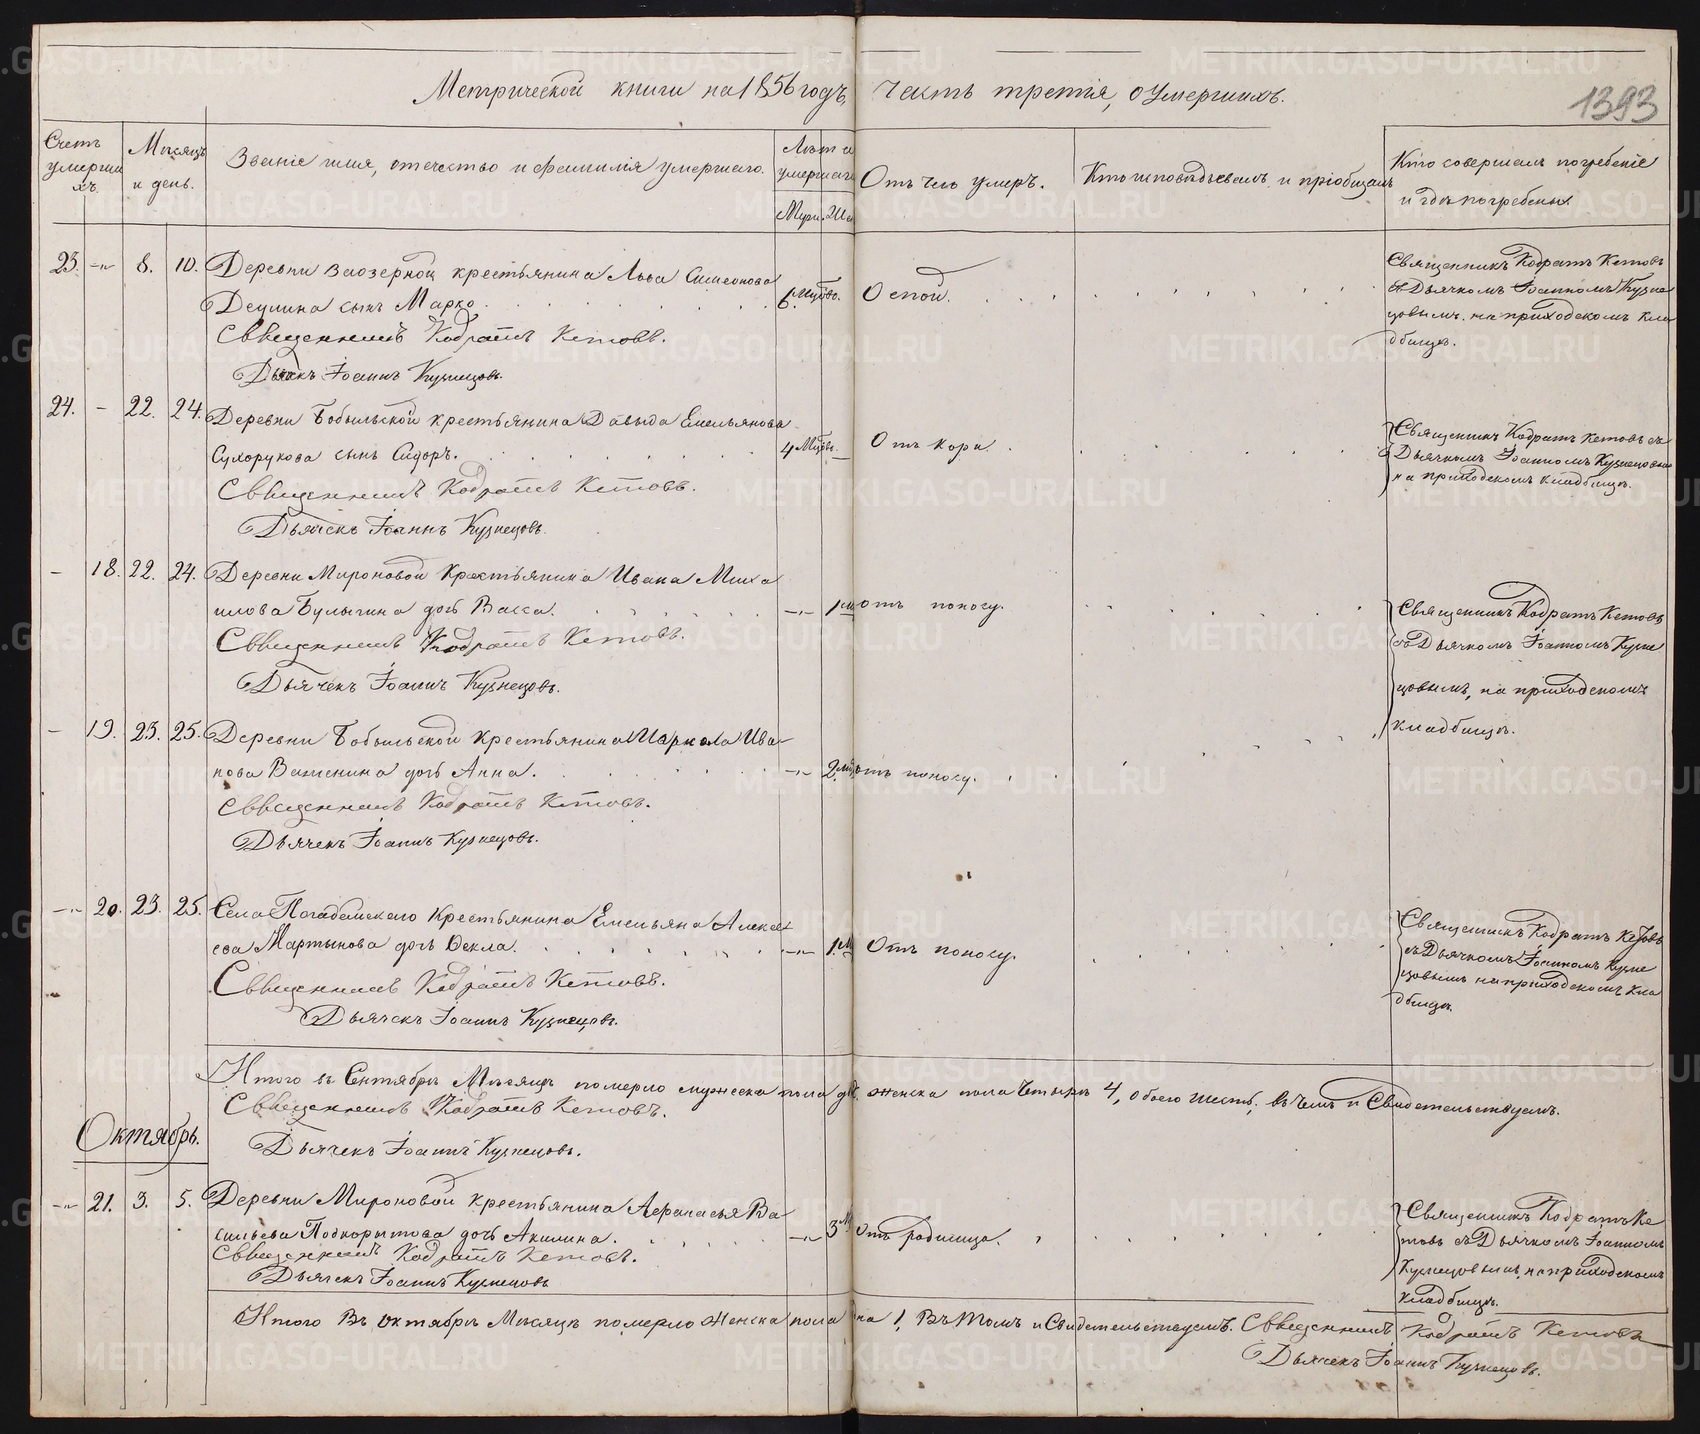 Метрической книги на 1856 годъ, часть третія, о умершихъ.
1393
Счетъ умершихъ.
Мѣсяцъ и день.
Званіе имя, отечество и фамилія умершаго.
Лѣта умершаго
Муж. Же
Отъ чего умеръ.
Кто исповѣдывалъ и пріобщалъ
Кто совершалъ погребеніе
и гдѣ погребены
23. -"- 8. 10. Деревни Заозерной крестьянина Льва Симеонова
Деулина сынъ Марко. 6. Мцовъ. Оспой.
Священникъ Кодратъ Кетовъ.
Дьячекъ Іоаннъ Кузнецовъ.
Священникъ Кодратъ Кетовъ
съ Дьячкомъ Іоанномъ Кузне
цовымъ. на приходскомъ кла
дбищѣ.
24. - 22. 24. Деревни Бобыльской крестьянина Давыда Емельянова
Сухорукова сынъ Сидоръ. 4 Мцовъ. Отъ кори.
Священникъ Кодратъ Кетовъ.
Дьячекъ Іоаннъ Кузнецовъ.
Священникъ Кодратъ Кетовъ съ
Дьячкомъ Іоанномъ Кузнецовымъ
на приходскомъ кладбищѣ.
- 18. 22. 24. Деревни Мироновой Крестьянина Ивана Миха
илова Булыгина дочь Васса. -"- 1 м отъ поносу.
Священникъ Кодратъ Кетовъ.
Дьячекъ Іоаннъ Кузнецовъ.
Священникъ Кодратъ Кетовъ
съ Дьячкомъ Іоанномъ Кузне
цовымъ, на приходскомъ
кладбищѣ.
- 19. 23. 25. Деревни Бобыльской крестьянина Маркела Ива
нова Важенина дочь Анна. -"- 2. мц отъ поносу.
Священникъ Кодратъ Кетовъ.
Дьячекъ Іоаннъ Кузнецовъ.
-"- 20. 23. 25. Села Крестьянина Емельяна Алексѣ
ева Мартынова дочь Ѳекла. -"- 1. м Отъ поносу.
Священникъ Кодратъ Кетовъ.
Дьячекъ Іоаннъ Кузнецовъ.
Священникъ Кодратъ Кетовъ
съ Дьячкомъ Іоанномъ Кузне
цовымъ на приходскомъ кла
дбищѣ.
Итого въ Сентябрѣ Мѣсяцѣ померло мужеска пола женска пола четыре 4, обоего шесть, въ чемъ и Свидетельствуемъ.
Священникъ Кодратъ Кетовъ.
Дьячекъ Іоаннъ Кузнецовъ.
Октябрь.
-"- 21. 3. 5. Деревни Мироновой крестьянина Аѳанасья Ва
сильева Подкорытова дочь Акилина. -"- 3 м Отъ родимца.
Священникъ Кодратъ Кетовъ.
Дьячекъ Іоаннъ Кузнецовъ
Священникъ Кодратъ Ке
товъ съ Дьячкомъ Іоанномъ
Кузнецовымъ, на приходскомъ
кладбищѣ.
Итого Въ октябрѣ Мѣсяцѣ померло женска пола одна 1, Въ томъ и Свидетельствуемъ. Священникъ Кодратъ Кетовъ
Дьячекъ Іоаннъ Кузнецовъ.